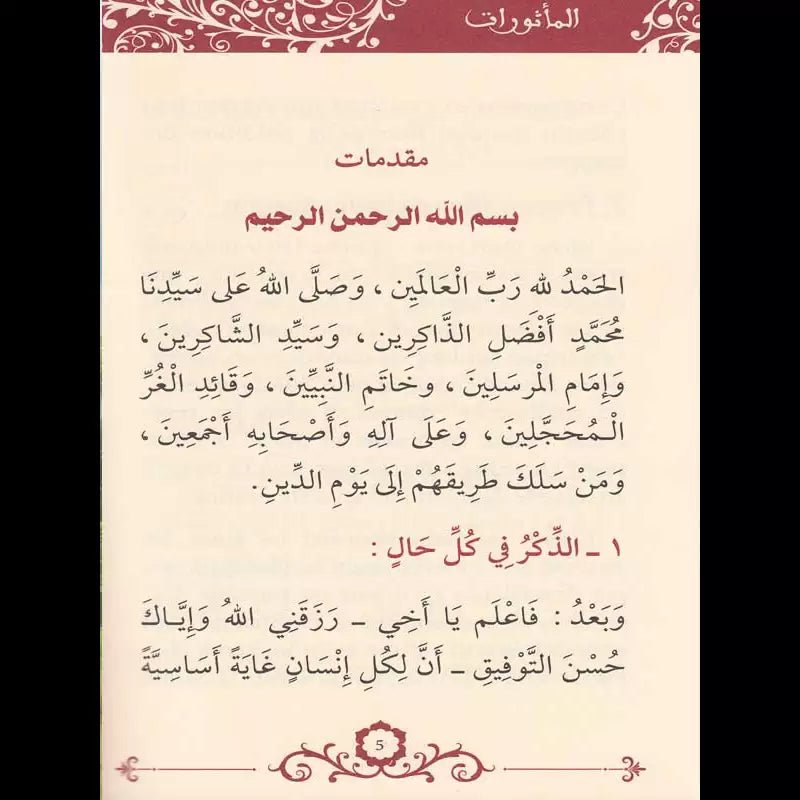 المأثورات
مقدمات
بسم الله الرحمن الرحيم
الحَمْدُ لله رَبِّ الْعَالَمَين ، وَصَلَّى اللهُ عَلى سَيِّدِنَا
مُحَمَّدٍ أَفْضَلِ الذَّاكِرِين ، وَسَيِّدِ الشَّاكِرِينَ ،
وَإِمَامِ الْمرسَلِينَ ، وخَاتَمِ النَّبِيِّينَ ، وَقَائِدِ الْغُرِّ
الْـمُحَجَّلِينَ ، وَعَلَى آلِهِ وَأَصْحَابِهِ أَجْمَعِينَ ،
وَمَنْ سَلَكَ طَرِيقَهُمْ إِلَى يَوْمِ الدِّينِ.
١ ـ الذِّكْرُ فِي كُلِّ حَالٍ :
وَبَعْدُ : فَاعْلَم يَا أَخِي ـ رَزَقَنِي اللهُ وَإِيَّـاكَ
حُسْنَ التَّوْفِيقِ ـ أَنَّ لِكُلِ إِنْسَانٍ غَايَةً أَسَاسِيَّةً
5